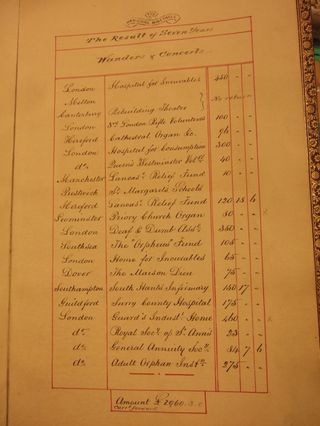 The Result of Seven Years
Wanders & Concerts
London Hospital for Incurables 440 - -
Melton
Canterbury Rebuilding Theatre } No return
London 3rd London Rifle Volunteers 100 - -
Hereford Cathedral Organ &c. 96 - -
London Hospital for Consumption 300 - -
do Queen's Westminster Vols. 40 - -
Manchester Lancasr. Relief Fund 10 - -
Prestwich St. Margarets Schools
Hereford Lancasr. Relief Fund 120 18 6
Leominster Priory Church Organ 50 - -
London Deaf & Dumb Assn. 350 - -
Southsea The "Orpheus" Fund 105 - -
London Home for Incurables 65 - -
Dover The Maison Dieu 75 - -
Southampton South Hants Infirmary 150 17 -
Guildford Surry County Hospital 175 - -
London Guard's Industl. Home 460 - -
do Royal Socy. of St. Anns 25 - -
do General Annuity Socy. 84 7 6
do Adult Orphan Instn. 275 - -
Amount £ 2960. 3. 0
carrd. forward